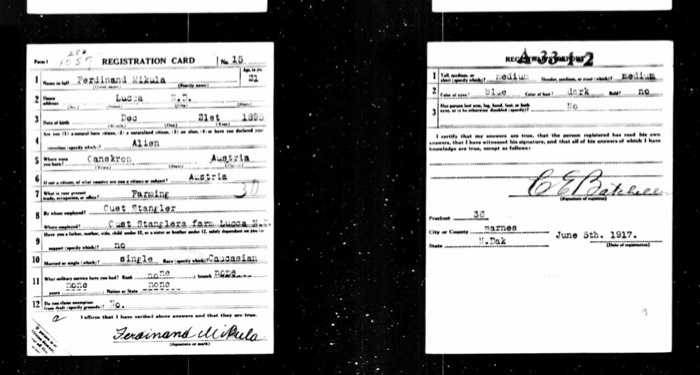 Form 1 REGISTRATION CARD No. 15
Age, in yrs.
1 Name in full Ferdinand Mikula 21
(Given name) (Family name)
2 Home address Lucca N.D.
(No.) (Street) (City) (State)
3 Date of birth Dec 21st
(Month) (Day) (Year)
4 Are you (1) a natural-born citizen, (2) a naturalized citizen, (3) an alien, (4) or have you declared your
intention (specify which)? Alien
5 Where were you born? Canskron Austria
6 If not a citizen, of what country are you a citizen or subject? Austria
7 What is your present trade, occupation, or office? Farming 30
8 By whom employed? Gust Stangler
Where employed? Gust Stanglers farm Lucca N.D.
9 Have you a father, mother, wife, child under 12, or a sister or brother under 12, solely dependent on you for
support (specify which)? no
10 Married or single (which)? single Race (specify which)? Caucasian
11 What military service have you had? Rank none ; branch none
years none Nation or State none
12 Do you claim exemption from draft (specify grounds)? No.
I affirm that I have verified above answers and that they are true.
Ferdinand Mikula
(Signature or mark)
REGISTRAR'S REPORT
1 Tall, medium, or short (specify which)? medium Slender, medium, or stout (which)? medium
2 Color of eyes? blue Color of hair? dark Bald? no
3 Has person lost arm, leg, hand, foot, or both eyes, or is he otherwise disabled (specify)? No
I certify that my answers are true, that the person registered has read his own
answers, that I have witnessed his signature, and that all of his answers of which I have
knowledge are true, except as follows:
(Signature of registrar)
Precinct 36
City or County Barnes
State N.Dak June 5th. 1917.
(Date of registration)